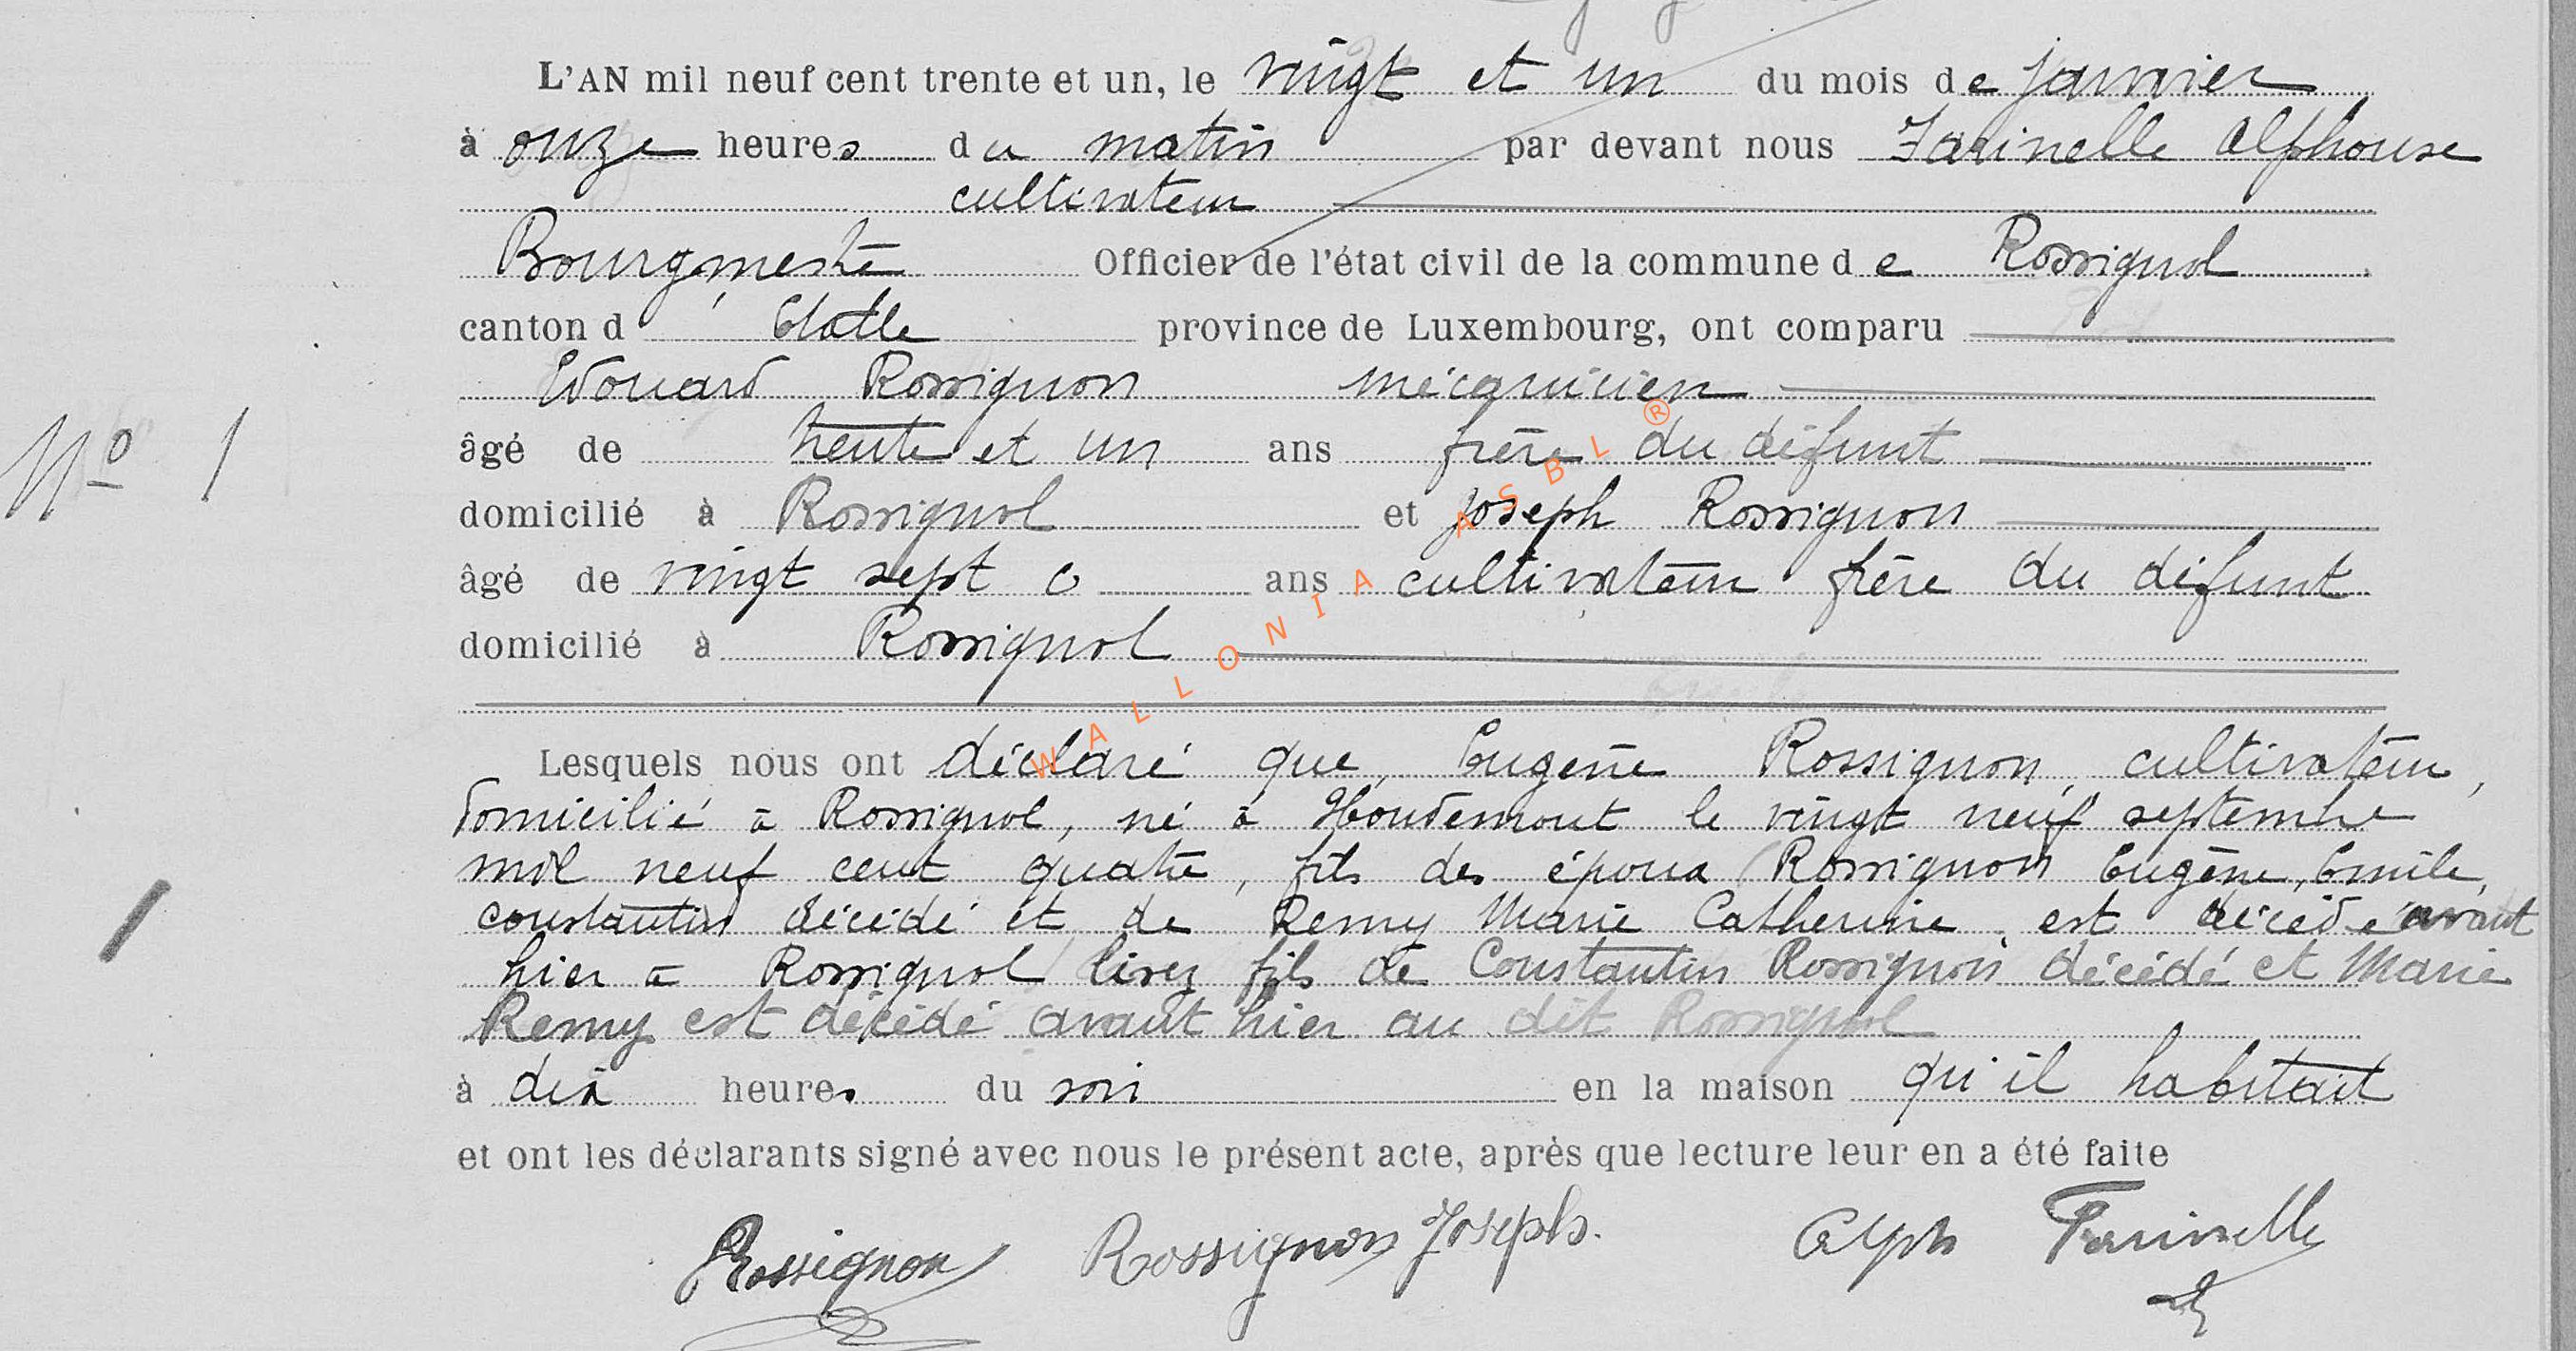 L'AN mil neuf cent trente et un, le vingt et un du mois de janvier
à onze heures du matin par devant nous Farinelle Alphonse
cultivateur
Bourgmestre Officier de l'état civil de la commune de Rossignol
canton d' Etalle province de Luxembourg, ont comparu
Edouard Rossignon mécanicien
âgé de trente et un ans frère du défunt
N° 1
domicilié à Rossignol et Joseph Rossignon
âgé de vingt sept ans cultivateur frère du défunt
domicilié à Rossignol
Lesquels nous ont déclaré que, Eugène Rossignon, cultivateur,
domicilié à Rossignol, né à Houdemont le vingt neuf septembre
mil neuf cent quatre, fils des époux Rossignon Eugène, Emile,
constantin décédé et de Remy Marie Catherine, est décédé avant
hier à Rossignol lisez fils de Constantin Rossignon décédé et Marie
Remy est décédé avant hier au dit Rossignol
à dix heures du soir en la maison qu'il habitait
et ont les déclarants signé avec nous le présent acte, après que lecture leur en a été faite
Rossignon Rossignon Joseph. Alph Farinelle
WALLONIA ASBL ®